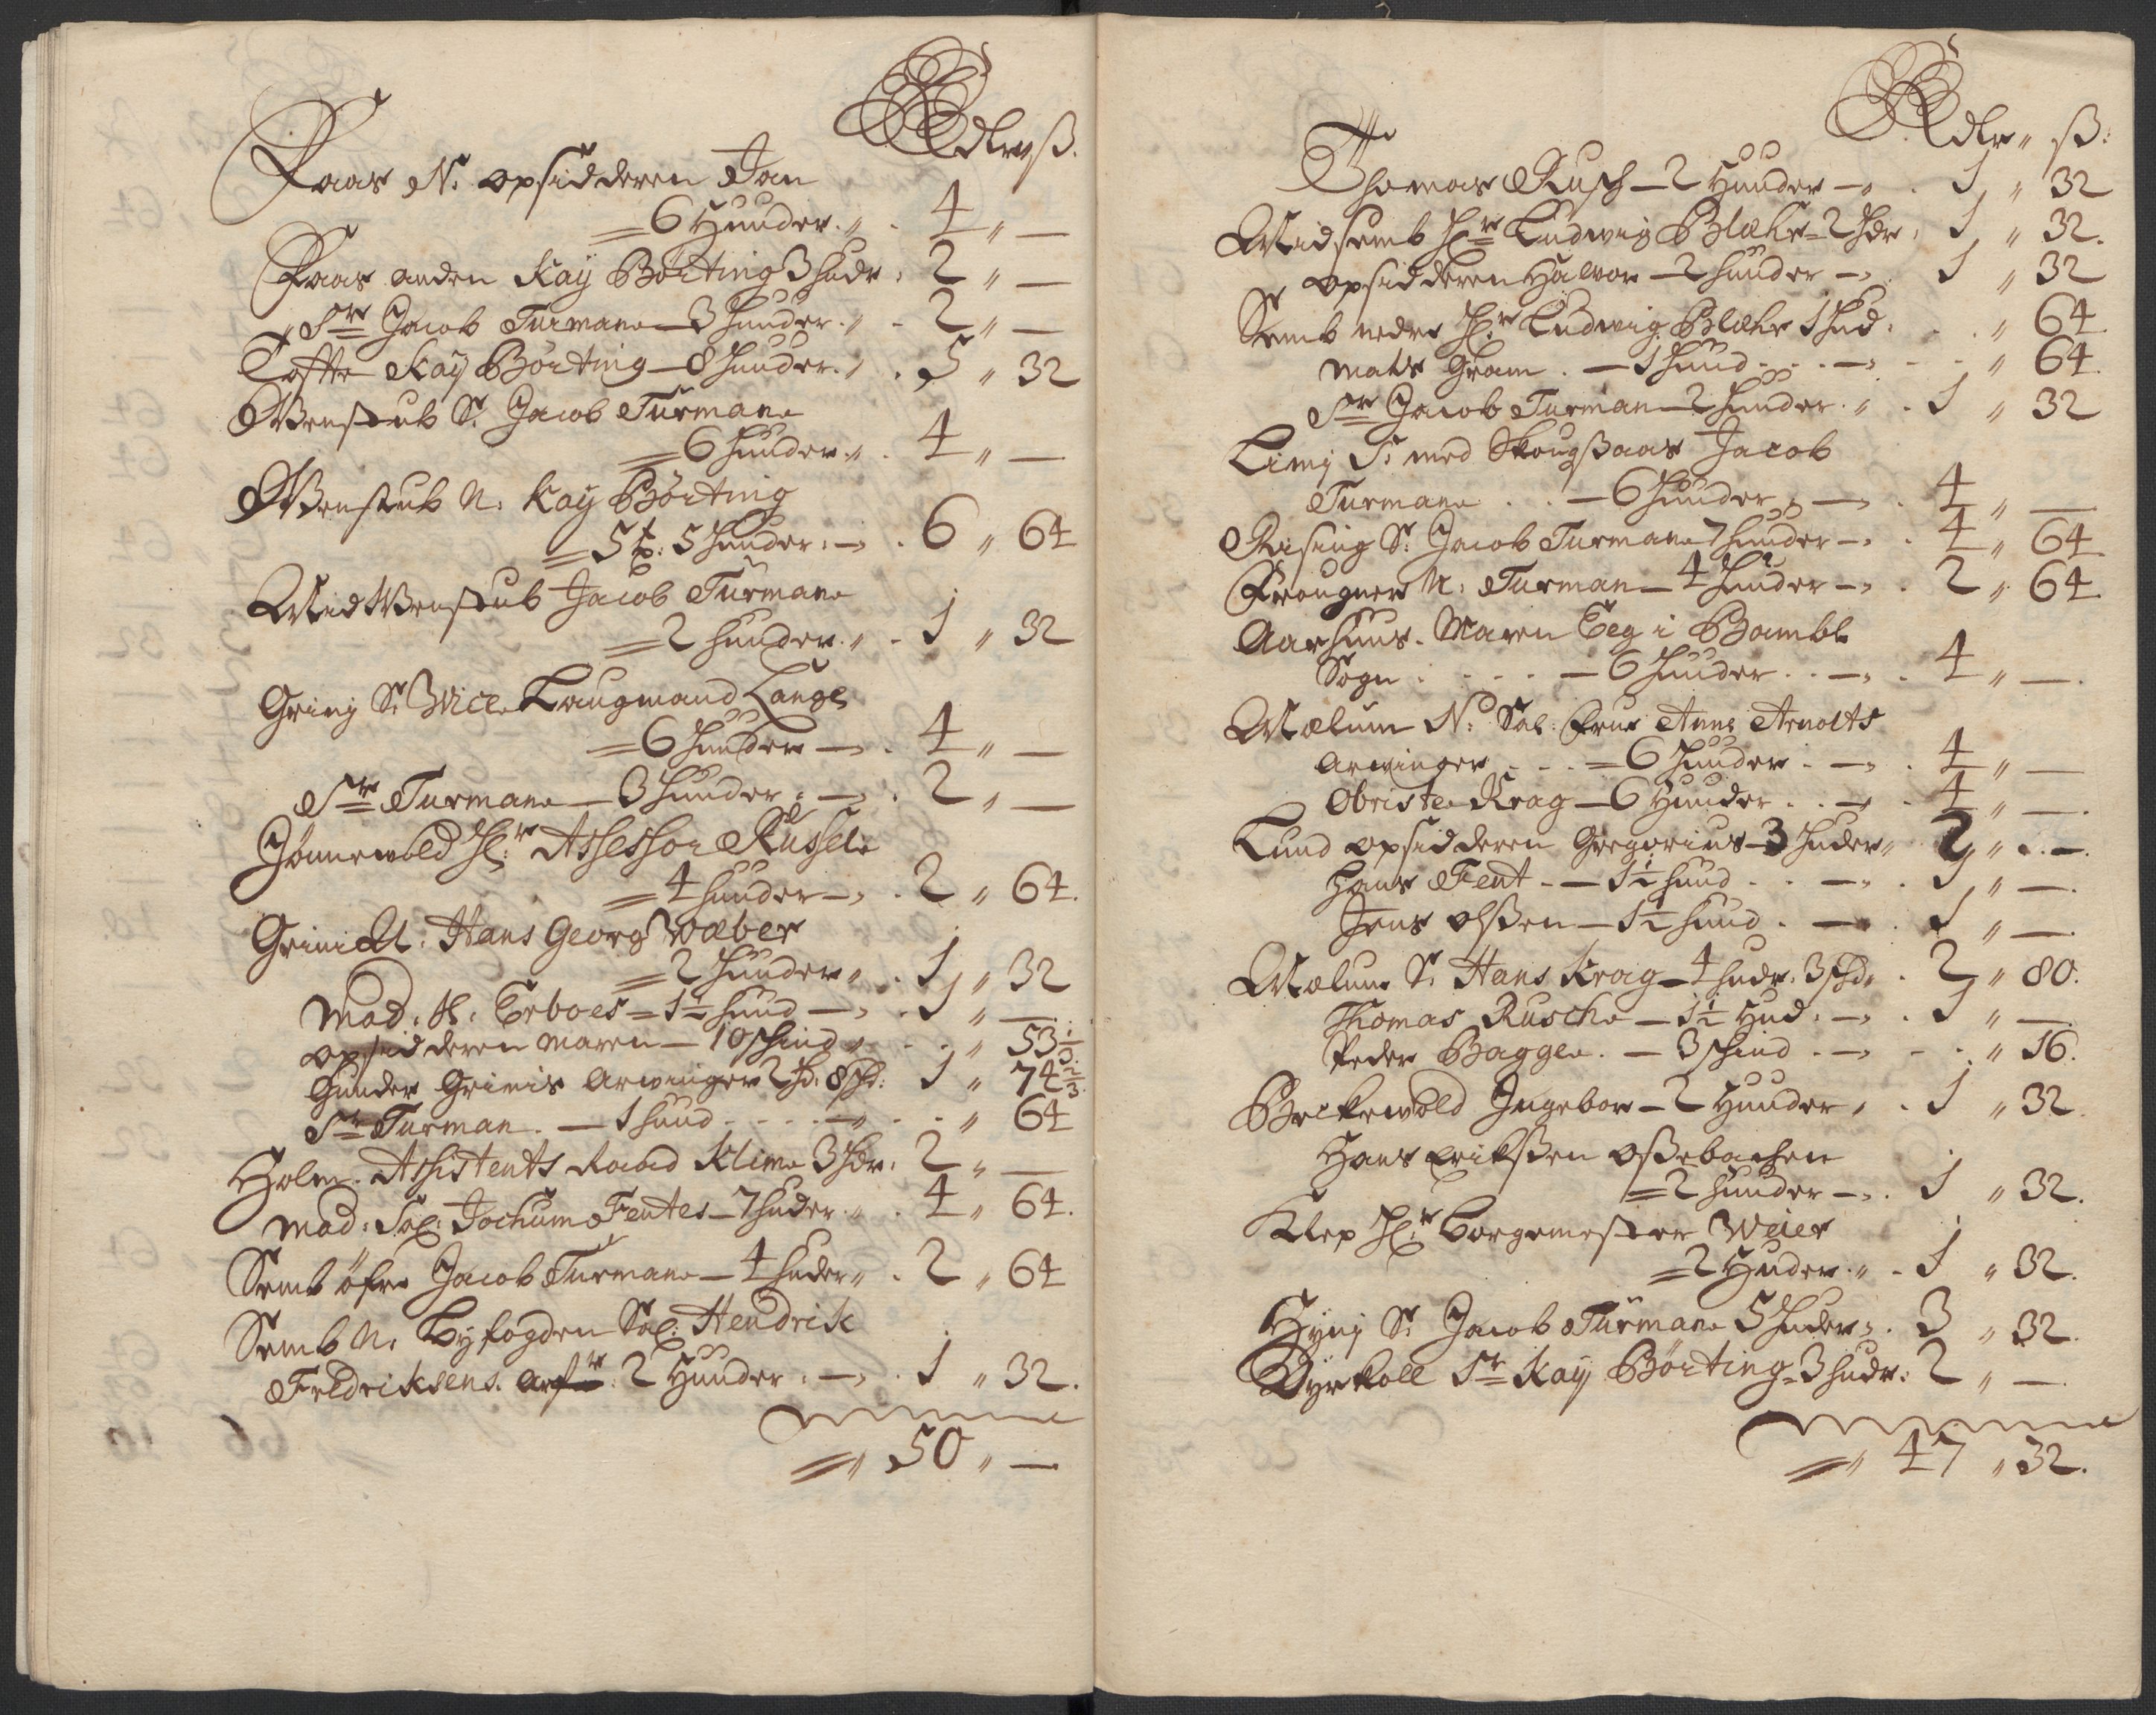 Rdlr ß.
Faas N: opsidderen Jon
= 6 Huuder „ . 4 „ —
Faas anden Kay Børting 3 hudr : 2 „ —
Sr Jacob Turmann — 3 huuder „ . 2 „ —
Tofte Kay Børting — 8 huuder „ . 5 „ 32
Wenstub S. Jacob Turmann
= 6 huuder „ . 4 „ —
Wenstub N: Kay Børting
= 5 t. 5 huuder : — . 6 „ 64
Mid Wenstub Jacob Turmann
= 2 huuder „ . 1 „ 32
Grinj S: Vice Laugmand Lange
= 6 huuder — . 4 „ —
Sr Turmann — 3 huuder : — . 2 „ —
Jønnewold Hr Assessor Russel
= 4 huuder — . 2 „ 64.
Grini N: Hans Georg Wæber
= 2 huuder „ . 1 „ 32
Mad: Erboes = 1½ huud — . 1 „ —
opsidderen Maren — 10 skind „ . . „ 53⅓
Gunder Grinis Arwinger 2 h: 8 sk: 1 „ 74⅔.
Sr Turman . — 1 huud . . . — . . „ 64
Holm. Assistents Raad Klim 3 hdr: 2 „ —
Mad: Sal: Jochum Fentes — 7 huder „ . 4 „ 64.
Semb øfre Jacob Turmann — 4 huder „ . 2 „ 64
Semb N: Byfogden Sal: Hendrik
Fredriksens 2 Huuder : — . 1 „ 32.
= „ 50 „ —
Rdlr „ ß:
Thomas Rusch — 2 Huuder — . 1 „ 32
Midsemb Hr Ludwig Blæhr = 2 hdr : 1 „ 32.
opsidderen Halvor — 2 huuder — . 1 „ 32
Semb nedre Hr Ludwig Blæhr 1 hud : . „ 64
Mats Gram . — 1 huud . . . — . . „ 64.
Sr Jacob Turman — 2 huuder „ . 1 „ 32
Limj S: med Skougßaas Jacob
Turmann . . — 6 huuder „ — . 4 „ —
Rising S: Jacob Turmann 7 huuder — . 4 „ 64
Frougner N: Turman — 4 huuder — . 2 „ 64.
Aarhuus. Maren Teg i Bamble
Sogn . . . . — 6 huuder . . — . 4 „ —.
Mælum N: Sal: Frue Anne Arnolts
Arwinger . . . = 6 huuder . — . 4 „ —
Obriste Krag — 6 Huuder . . — . 4 „ —.
Lund opsidderen Gregorius — 3 huder „ 2 „ . —.
Hans Fent . — 1½ huud . . — . 1 „ —.
Jens olßen — 1½ huud . — . 1 „ —.
Mælum S: Hans Krag — 4 hudr: 3 skd „ . 2 „ 80.
Thomas Rusche — 1½ Hud . — . 1 „ —
Peder Bagge . — 3 skind . — . . „ 16.
Breckewold Ingebor — 2 Huuder „ . 1 „ 32.
Hans Erikßen Oßebachen
= 2 huuder — . 1 „ 32.
Klep Hr Borgemester Weier
= 2 Huder „ . 1 „ 32.
Hynj S: Jacob Turmann 5 huder „ . 3 „ 32.
Dyrkoll Sr Kay Børting = 3 hudr : 2 „ —
= „ 47 „ 32.